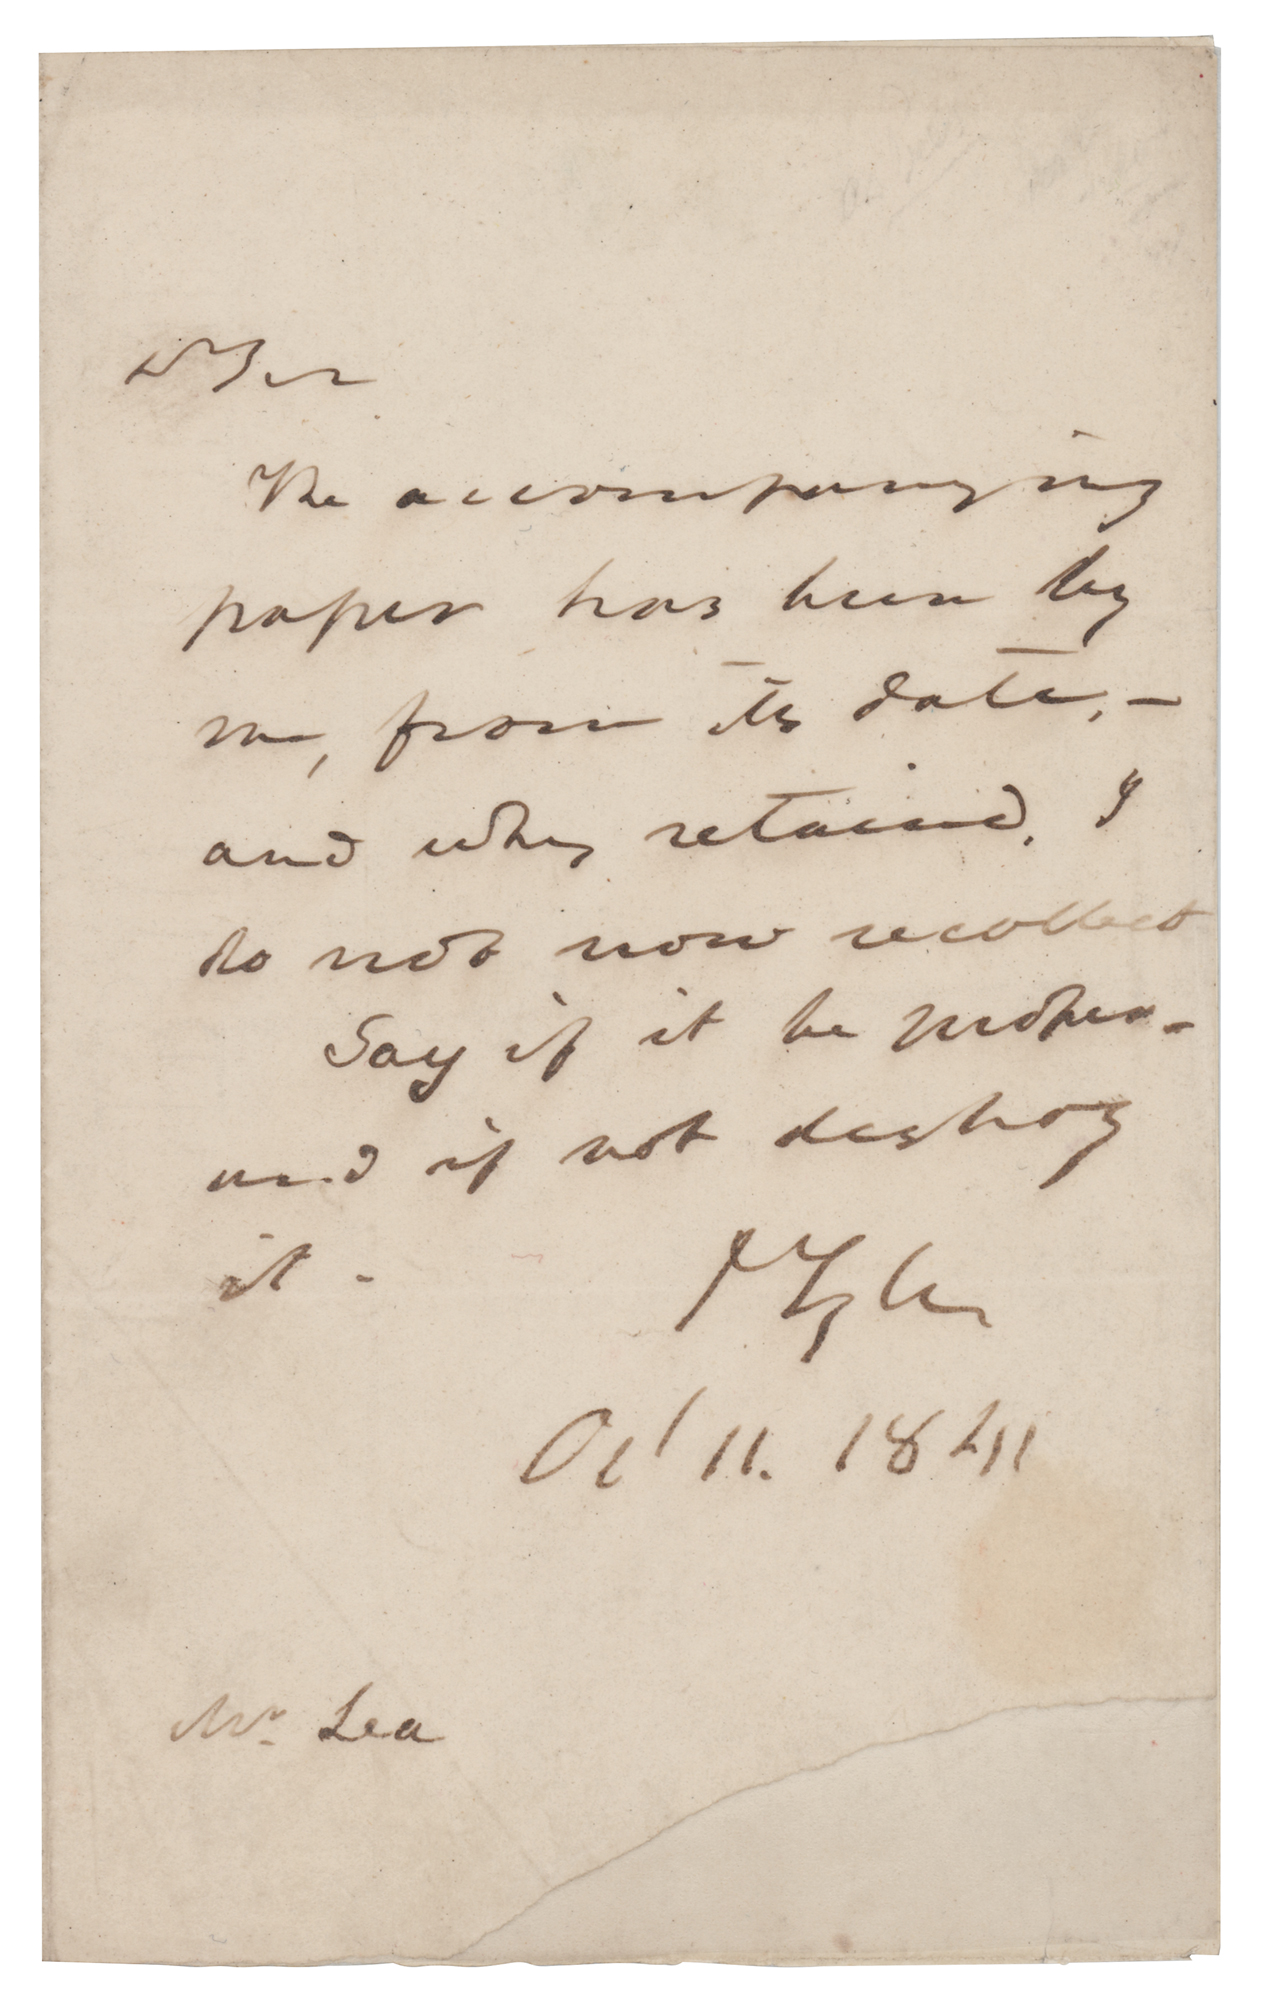 Dr Sir
The accompanying
paper has been by
me, from its date, -
and why retained, I
do not now recollect
Say if it be proper -
and if not destroy
it -
J Tyler
Oct 11. 1841
Mr. Lea